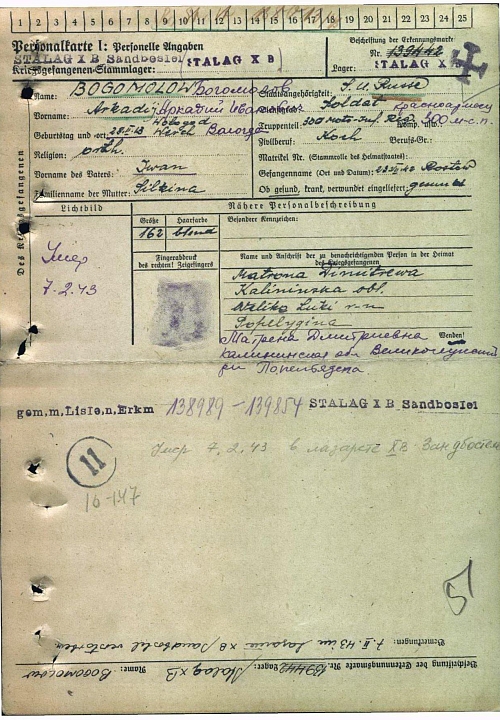 1 2 3 4 5 6 7 8 9 10 11 12 13 14 15 16 17 18 19 20 21 22 23 24 25
Personalkarte I: Personelle Angaben
STALAG X B Sandbostel STALAG X B
Kriegsgefangenen-Stammlager:
Beschriftung der Erkennungsmarke
Nr. 139442
Lager: STALAG X B
Des Kriegsgefangenen
Name: BOGOMOLOW Богомолов
Vorname: Arkadij Аркадий Иванович
Geburtstag und -ort: Вологда
Religion: orth.
Vorname des Vaters: Iwan
Familienname der Mutter: Silkina
Staatsangehörigkeit: S.U. Russe
Dienstgrad: Soldat красноармеец
Truppenteil: 300 Komp. usw.: 300 м.с.п.
Zivilberuf: Koch Berufs-Gr.:
Matrikel Nr. (Stammrolle des Heimatstaates):
Gefangennahme (Ort und Datum): Rostow
Ob gesund, krank, verwundet eingeliefert: gesund
Lichtbild
Nähere Personalbeschreibung
Größe Haarfarbe Besondere Kennzeichen:
162 blond
Fingerabdruck des rechten! Zeigefingers
Name und Anschrift der zu benachrichtigenden Person in der Heimat des Kriegsgefangenen
Умер
7.2.43
Matrona Dimitrewa
Kalininska obl.
Weliko Luki r-n
Popelygina
Матрена Дмитриевна
Калининская обл Великолукский
Wenden!
gem,m,Liste,n,Erkm 138989 - 139854 STALAG X B Sandbostel
Умер 7.2.43 в лазарете XB Зандбостель
11
16-147
Bemerkungen: 7.II.43 im Lazarett XB Sandbostel verstorben
Beschriftung der Erkennungsmarke Nr. 139442 Lager: Stalag XB Name: Bogomolow